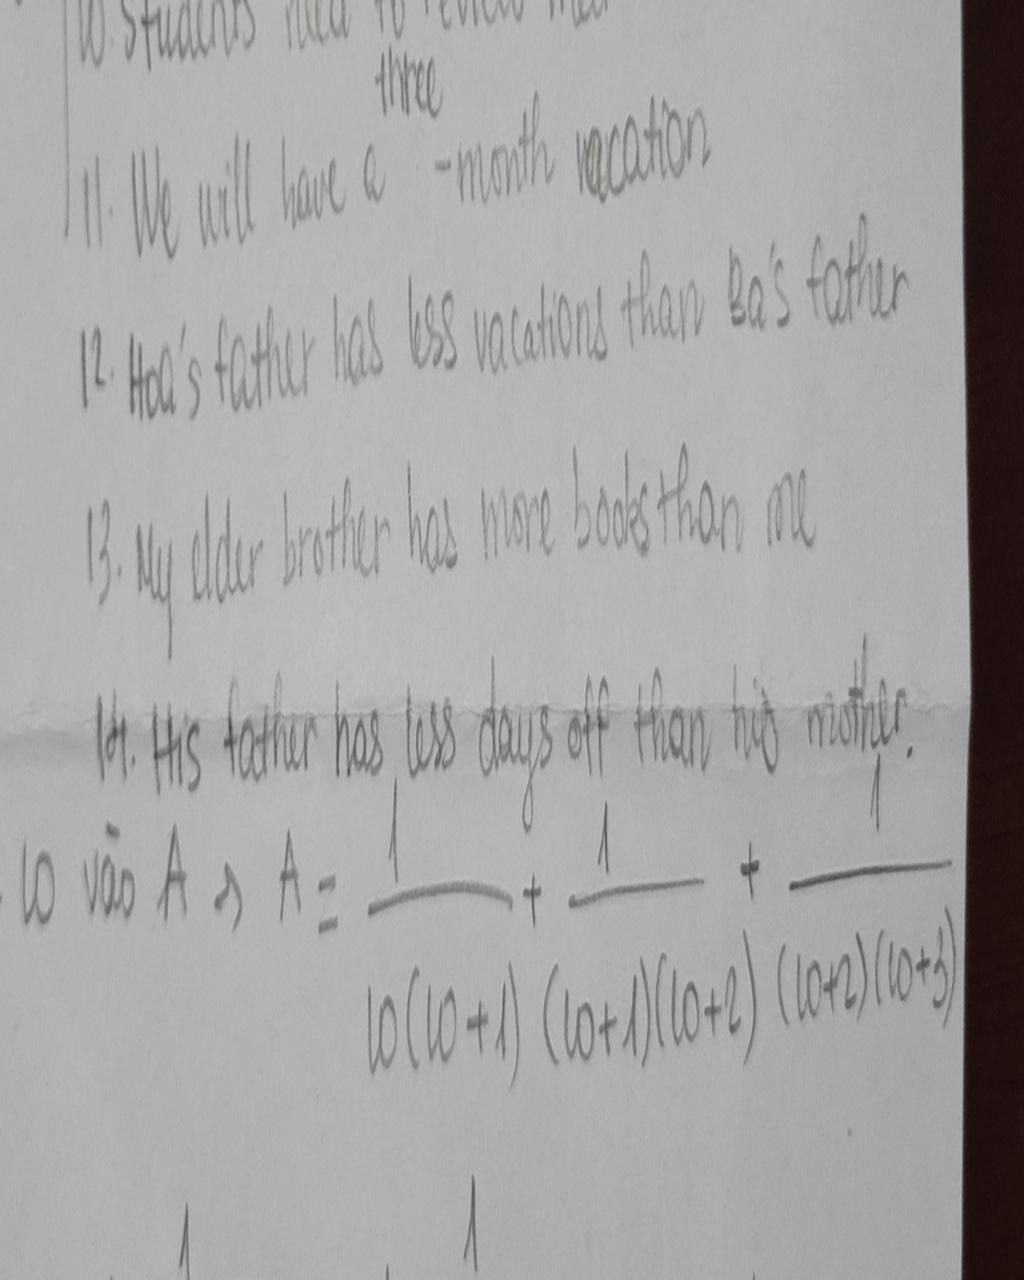 10. Students need to review their
three
11. We will have a -month vacation
12. Hoa's father has less vacations than Ba's father
13. My elder brother has more books than me
14. His father has less days off than his mother.
10 vào A => A = 1 + 1 + 1
10(10+1) (10+1)(10+2) (10+2)(10+3)
1 1